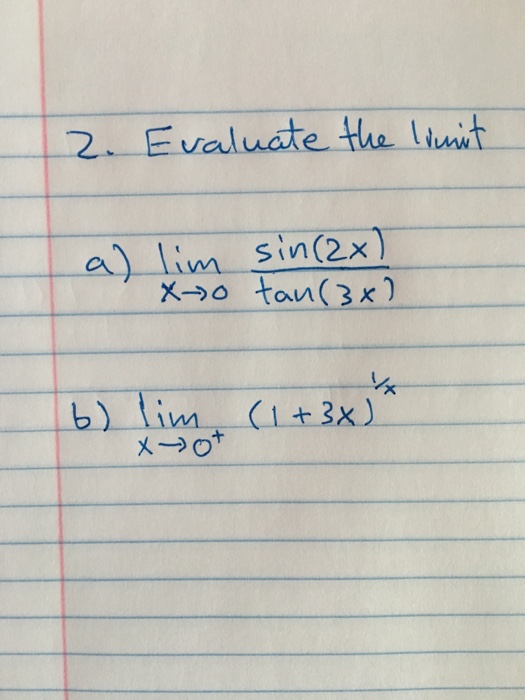 2. Evaluate the limit
a) lim x→0 sin(2x)/tan(3x)
b) lim x→0⁺ (1+3x)^1/x